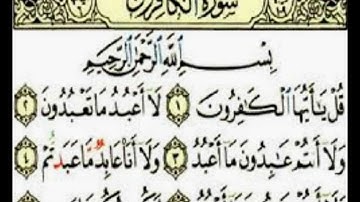 سورة الكافرون
بِسْمِ اللَّهِ الرَّحْمَٰنِ الرَّحِيمِ
قُلْ يَا أَيُّهَا الْكَافِرُونَ ١ لَا أَعْبُدُ مَا تَعْبُدُونَ ٢
وَلَا أَنتُمْ عَابِدُونَ مَا أَعْبُدُ ٣ وَلَا أَنَا عَابِدٌ مَّا عَبَدتُّمْ ٤